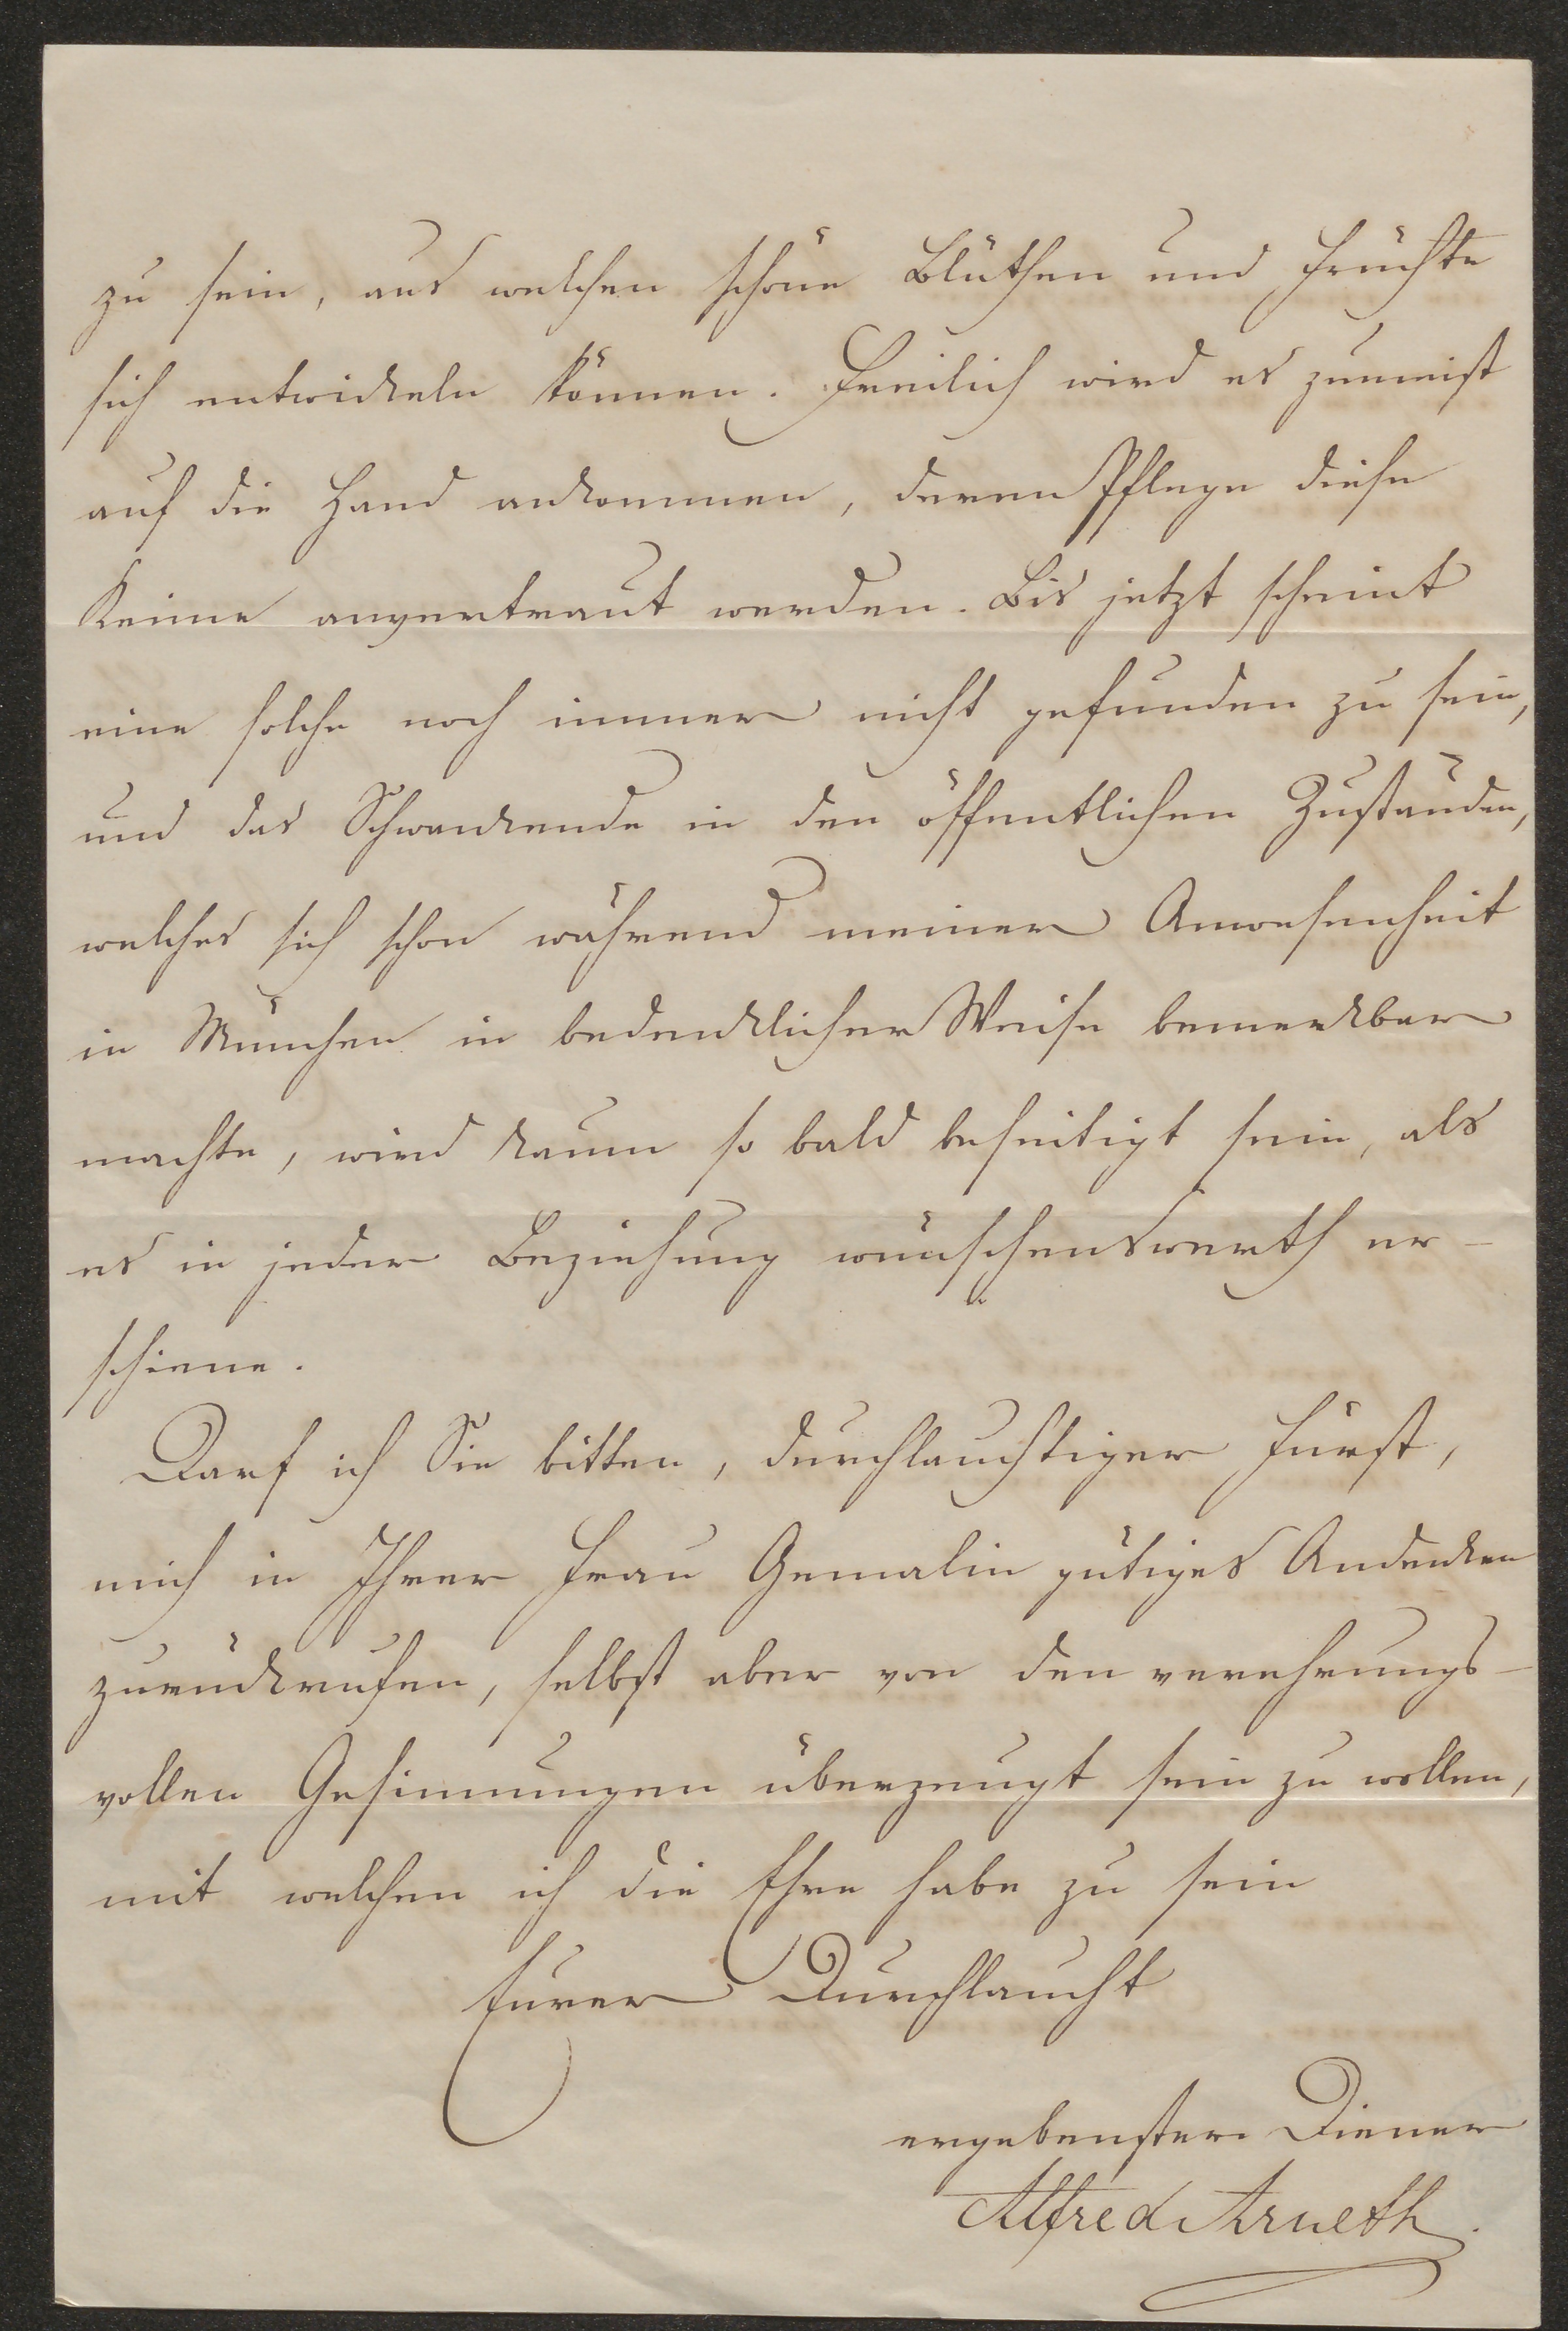 zu sein, aus welchen schöne Blüthen und Früchte
sich entwickeln können. Freilich wird es zumeist
auf die Hand ankommen, deren Pflege diese
Keime anvertraut werden. Bis jetzt scheint
eine solche noch immer nicht gefunden zu sein,
und das Schwankende in den öffentlichen Zuständen,
welches sich schon während meiner Anwesenheit
in München in bedenklicher Weise bemerkbar
machte, wird kaum so bald beseitigt sein, als
es in jeder Beziehung wünschenswerth er-
schiene.
Darf ich Sie bitten, durchlauchtiger Fürst,
mich in Ihrer Frau Gemalin gütiges Andenken
zurückrufen, selbst aber von den verehrungs-
vollen Gesinnungen überzeugt sein zu wollen,
mit welchen ich die Ehre habe zu sein
Eurer Durchlaucht
ergebenster Diener
Alfred Arneth